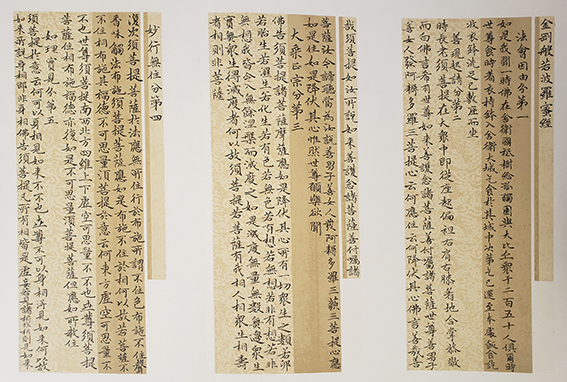 金剛般若波羅蜜經
法會因由分第一
如是我聞一時佛在舍衛國祇樹給孤獨園與大比丘眾千二百五十人俱爾時
世尊食時著衣持鉢入舍衛大城乞食於其城中次第乞已還至本處飯食訖
收衣鉢洗足已敷座而坐
善現起請分第二
時長老須菩提在大眾中即從座起偏袒右肩右膝着地合掌恭敬
而白佛言希有世尊如來善護念諸菩薩善付囑諸菩薩世尊善男子
善女人發阿耨多羅三藐三菩提心云何應住云何降伏其心佛言善哉善
哉須菩提如汝所說如來善護念諸菩薩善付囑諸
菩薩汝今諦聽當為汝說善男子善女人發阿耨多羅三藐三菩提心應
如是住如是降伏其心唯然世尊願樂欲聞
大乘正宗分第三
佛告須菩提諸菩薩摩訶薩應如是降伏其心所有一切眾生之類若卵
若胎生若濕生若化生若有色若無色若有想若無想若非有想若非無
想我皆令入無餘涅槃而滅度之如是滅度無量無數無邊眾生
實無眾生得滅度者何以故須菩提若菩薩有我相人相眾生相壽
者相則非菩薩
妙行無住分第四
復次須菩提菩薩於法應無所住行於布施所謂不住色布施不住聲
香味觸法布施須菩提菩薩應如是布施不住於相何以故若菩薩不
住相布施其福德不可思量須菩提於意云何東方虛空可思量不
不也世尊須菩提南西北方四維上下虛空可思量不不也世尊須菩提
菩薩住相布施福德亦復如是不可思量須菩提菩薩但應如所教住
如理實見分第五
須菩提於意云何可以身相見如來不不也世尊不可以身相得見如來何以故
如來所說身相即非身相佛告須菩提凡所有相皆是虛妄若見諸相非相則見如